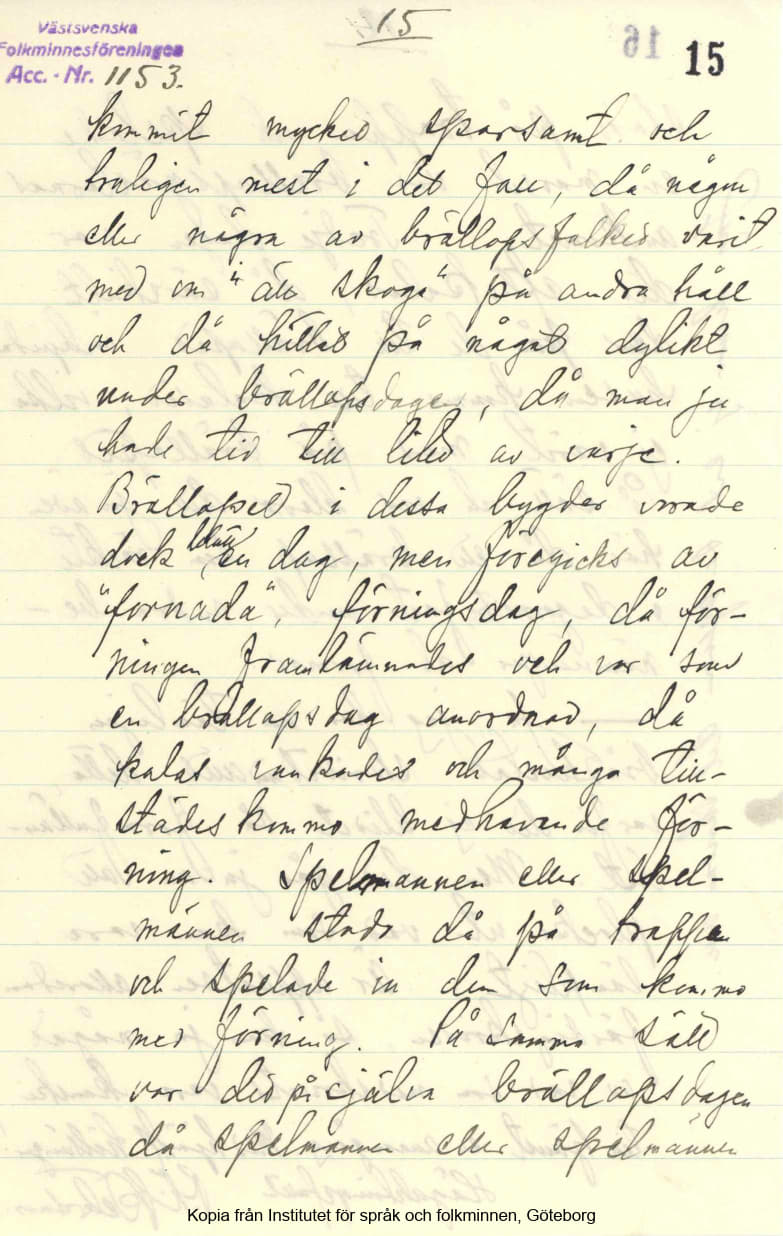 Västsvenska
Folkminnesföreningen
Acc. - Nr. 1153.
15
16 15
kommit mycket sparsamt och
troligen mest i det fall, då någon
eller några av bröllopsfolket varit
med om "att skoga" på andra håll
och då hittat på något dylikt
under bröllopsdagen, då man ju
hade tid till litet av varje.
Bröllopet i dessa bygder varade
dock blott en dag, men föregicks av
"fornada", förningsdag, då för-
ningen framlämnades och var som
en bröllopsdag anordnad, då
kalas vankades och många till-
städes kommo medhavande för-
ning. Spelmannen eller spel-
männen stodo då på trappan
och spelade in dem som kommo
med förning. På samma sätt
var det på själva bröllopsdagen
då spelmannen eller spelmännen
Kopia från Institutet för språk och folkminnen, Göteborg